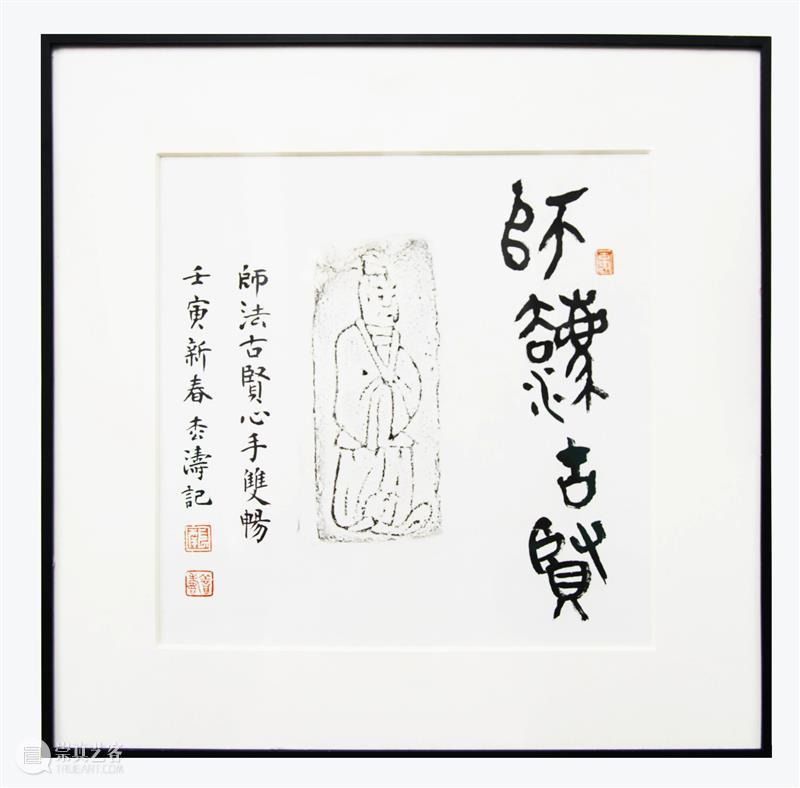 師古賢
師法古賢心手雙暢
壬寅新春濤記
崇真艺客
TRUEART.COM